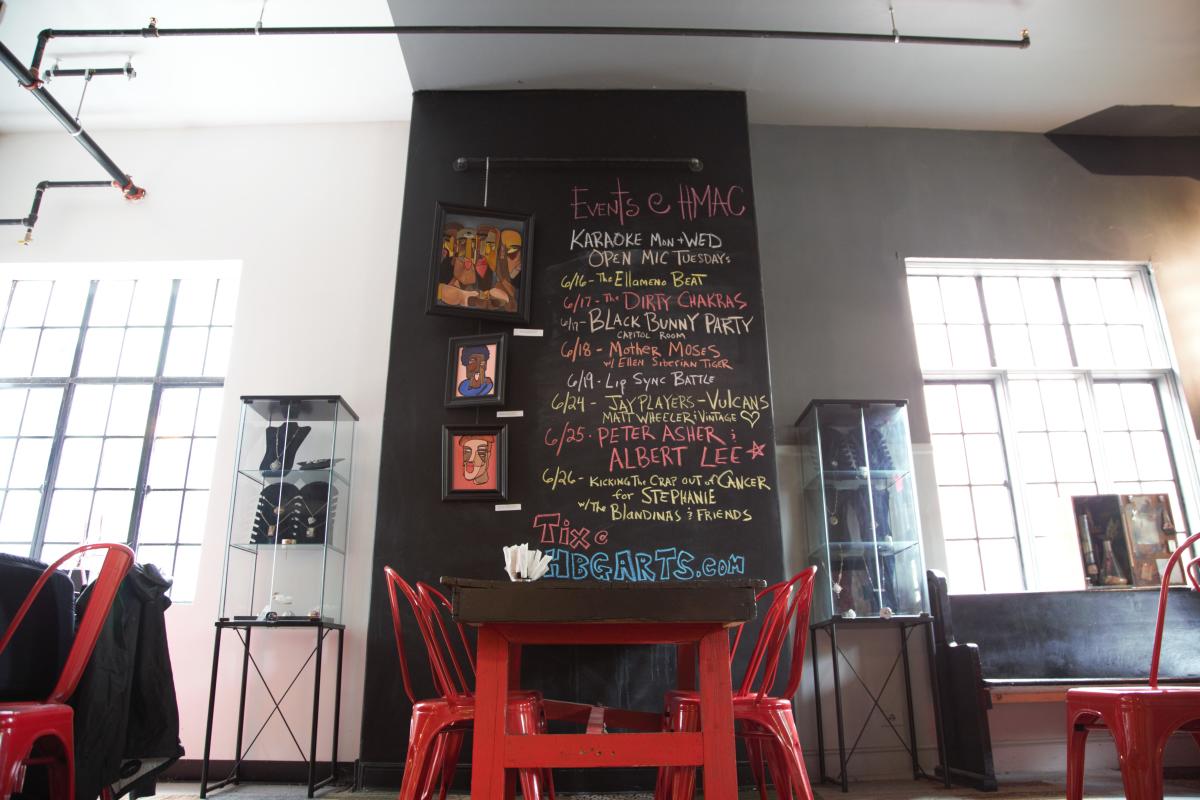 EVENTS @ HMAC
KARAOKE MON + WED
OPEN MIC TUESDAYS
6/16 - THE ELLAMENO BEAT
6/17 - THE DIRTY CHAKRAS
6/17 - BLACK BUNNY PARTY
CAPITOL ROOM
6/18 - MOTHER MOSES
W/ ELLEN SIBERIAN TIGER
6/19 - LIP SYNC BATTLE
6/24 - JAY PLAYERS - VULCANS
MATT WHEELER & VINTAGE ♡
6/25 - PETER ASHER &
ALBERT LEE ☆
6/26 - KICKING THE CRAP OUT OF CANCER
for STEPHANIE
w/ THE BLANDINAS & FRIENDS
TIX @
HBGARTS.COM